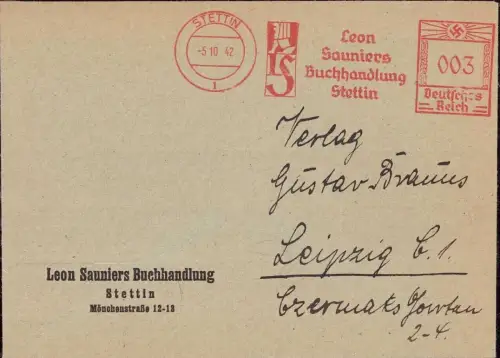 STETTIN
-5 10 42
1
LS
Leon
Sauniers
Buchhandlung
Stettin
003
Deutsches
Reich
Verlag
Gustav Brauns
Leipzig C. 1.
2-4.
Leon Sauniers Buchhandlung
Stettin
Mönchenstraße 12-13